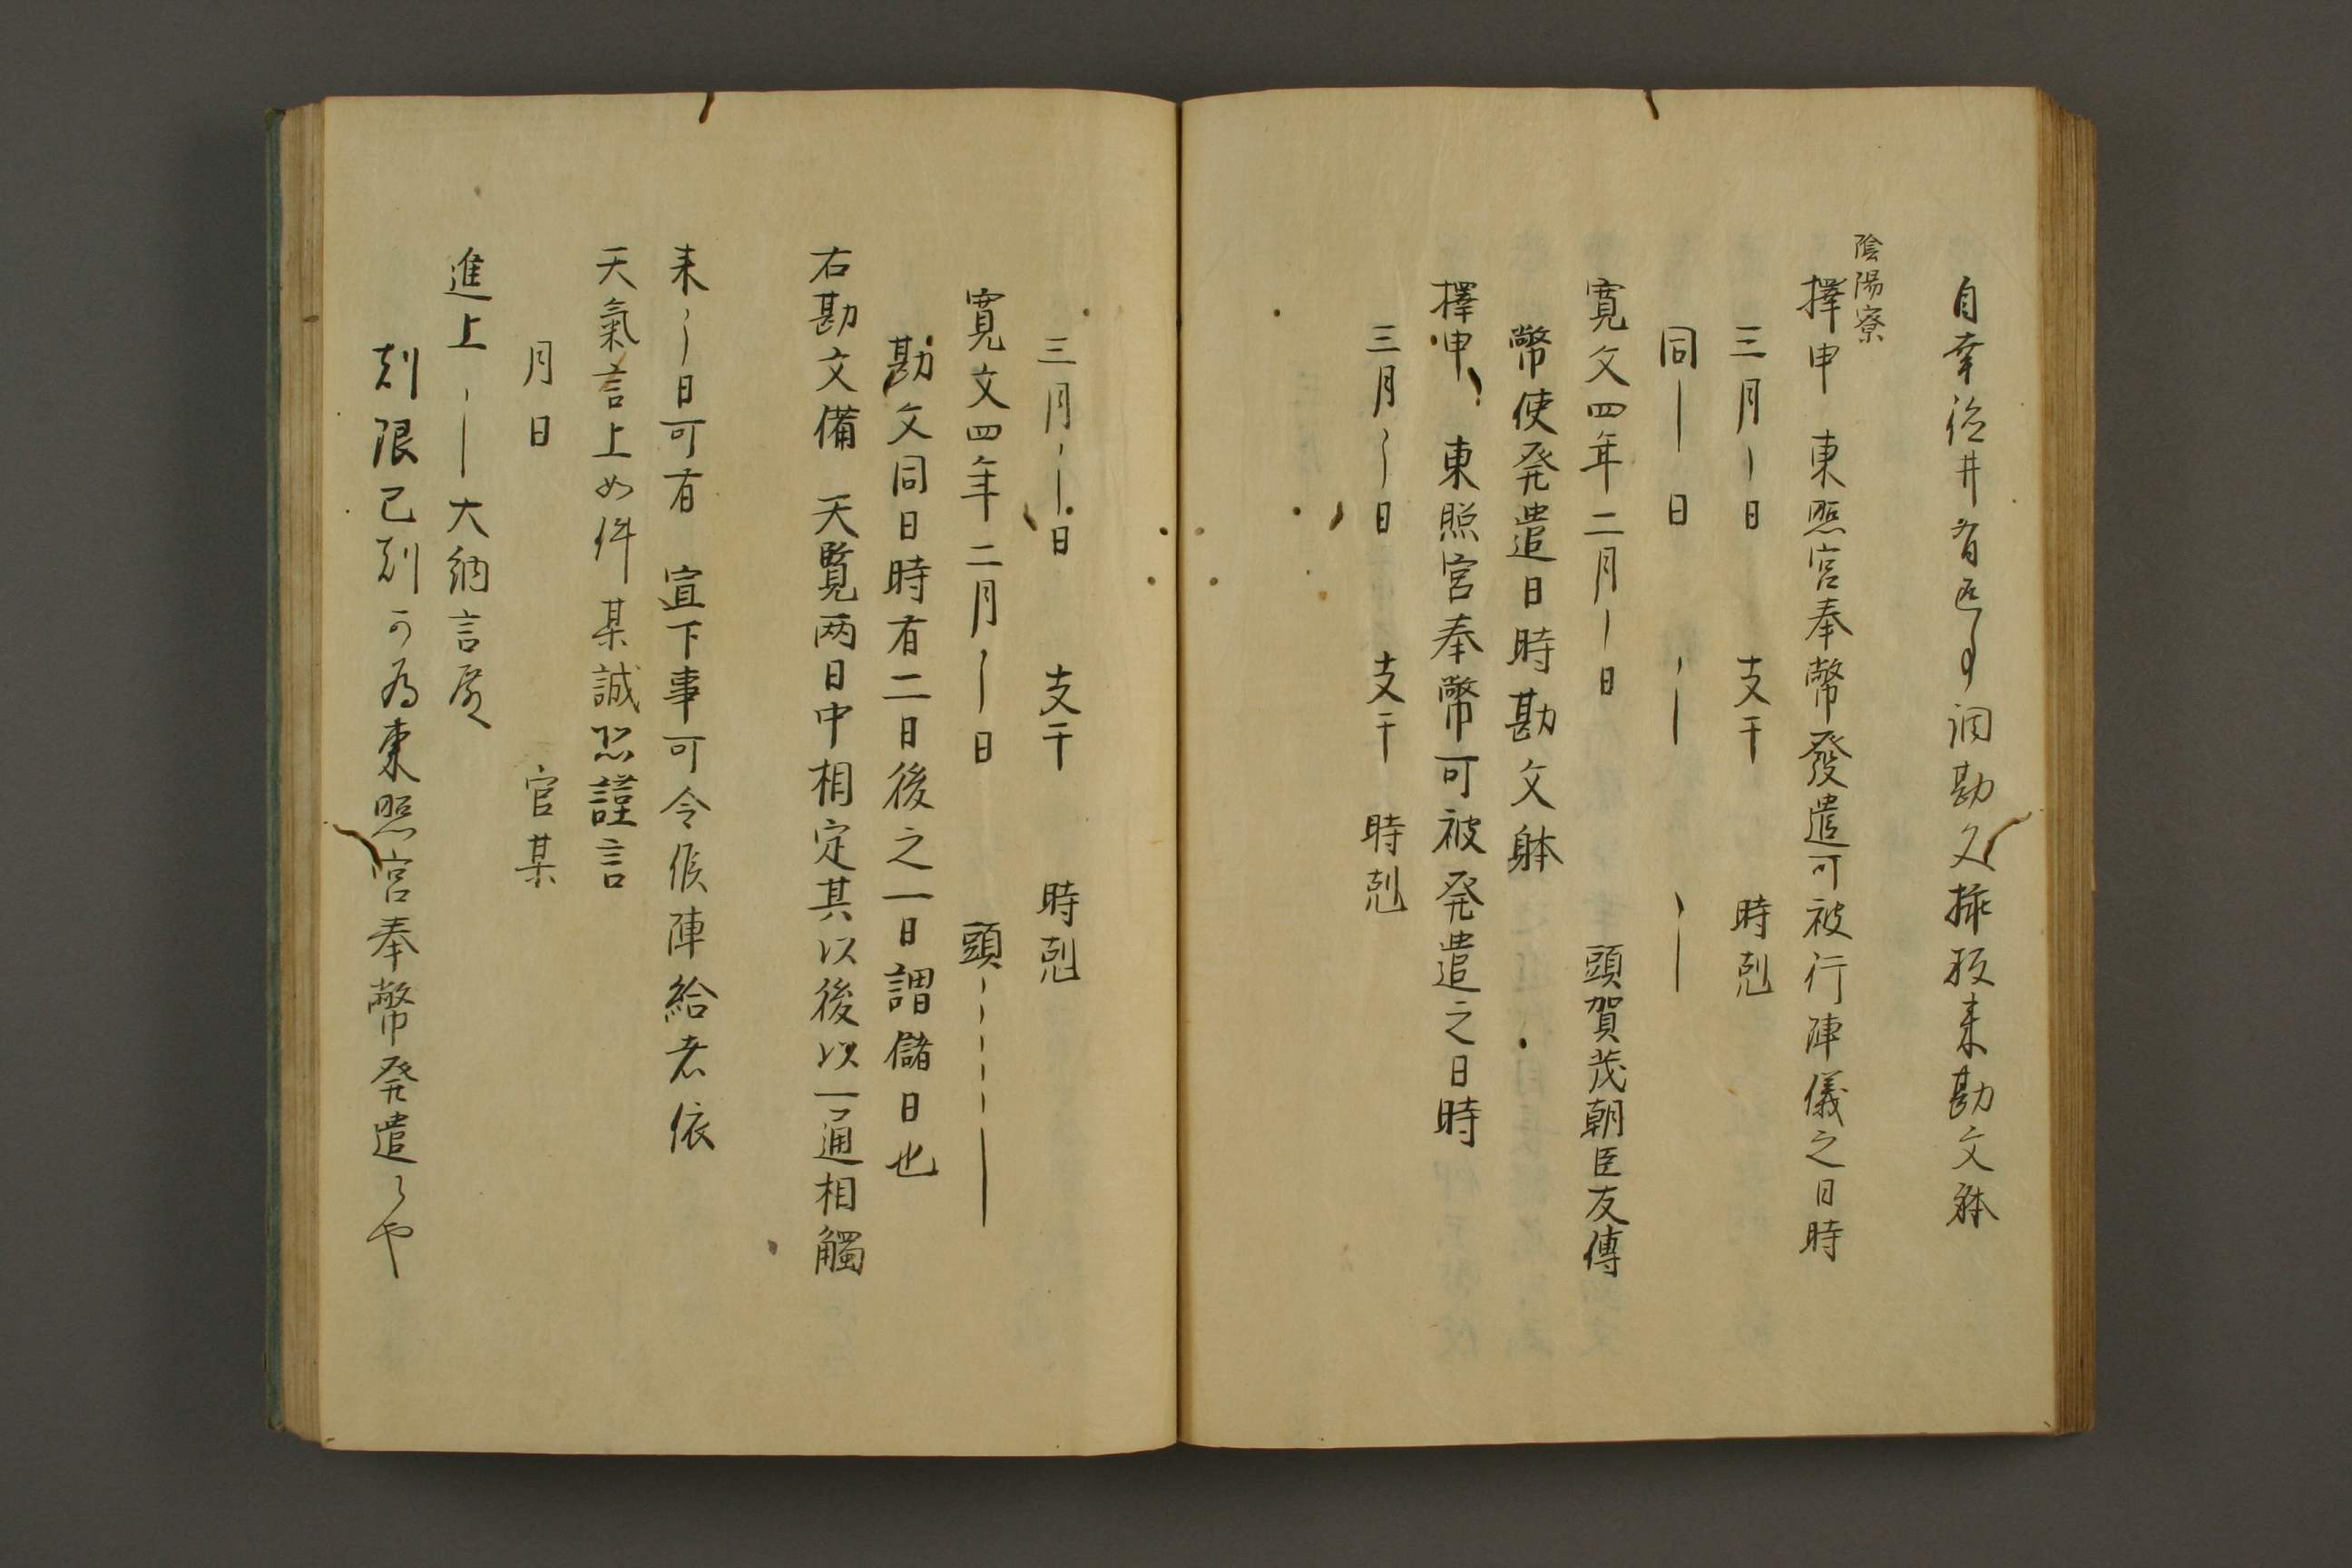 自幸徳井有返事調勘文持板来勘文躰
陰陽寮
擇申　東照宮奉幣發遣可被行陣儀之日時
三月〻｜日　支干　時剋
同｜日　〻｜　〻｜
寛文四年二月｜日　頭賀茂朝臣友傳
幣使発遣日時勘文躰
擇申　東照宮奉幣可被発遣之日時
三月〻｜日　支干　時剋
三月〻｜日　支干　時剋
寛文四年二月｜日　頭〻〻〻｜
勘文同日時有二日後之一日謂儲日也
右勘文備　天覧两日中相定其以後以一通相觸
来〻｜日可有　宣下事可令候陣給者依
天氣言上如件某誠恐謹言
月日　官某
進上〻｜大納言殿
刻限已刻可為東照宮奉幣発遣〻や